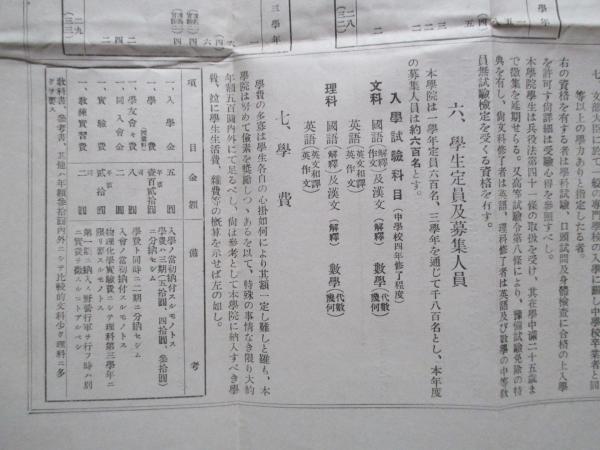 七、文部大臣に於て一般の專門學校の入學に關し中學校卒業者と同
等以上の學力ありと指定したる者。
右の資格を有する者は學科試驗、口頭試問及身體檢査に合格の上入學
を許可す尙詳細は受驗心得を參照すべし。
本學院學生は兵役法第四十一條の取扱を受け、其在學中滿二十五歲ま
で徵集を延期せらる。又高等試驗令第八條により、豫備試驗免除の特
典を有し、尙文科修了者は英語、理科修了者は英語及び數學の中等敎
員無試驗檢定を受くる資格を有す。
六、學生定員及募集人員
本學院は一學年定員六百名、三學年を通じて千八百名とし、本年度
の募集人員は約六百名とす。
入學試驗科目(中學校四年修了程度)
文科 國語(解釋作文)及漢文(解釋) 數學(代數幾何)
英語(英文和譯英作文)
理科 國語(解釋作文)及漢文(解釋) 數學(代數幾何)
英語(英文和譯英作文)
七、學費
學費の多寡は學生各自の心掛如何により其額一定し難しと雖も、本
學院は努めて儉素を奬勵しつゝあるを以て、特殊の事情なき限り大約
年額五百圓內外にて足るべし、尙ほ參考として本學院に納入すべき學
費、竝に學生生活費、雜費等の槪算を示せば左の如し。
項目 金額 備考
一、入學金 五圓 入學ノ當初納付スルモノトス
一、學費 年額壹百貳拾圓 學費ハ三期(五拾圓、四拾圓、參拾圓)
ニ分納セシム
一、學友會々費 年額八圓 學費ト同時ニ二期ニ分納セシム
一、同入會金 二圓 入會ノ當初納付スルモノトス
一、實驗費 貳拾圓 物理化學實驗費ニシテ理科第三學年ニ
限リ要スルモノトス
一、敎練實習費 二圓 第一期ニ納入ス野營行軍ヲ行フ時ハ別
ニ實費ヲ徵スルコトアルベシ
敎科書、參考書、其他ハ年額參拾圓內外ニシテ比較的文科少ク理科ニ多
クヲ要ス